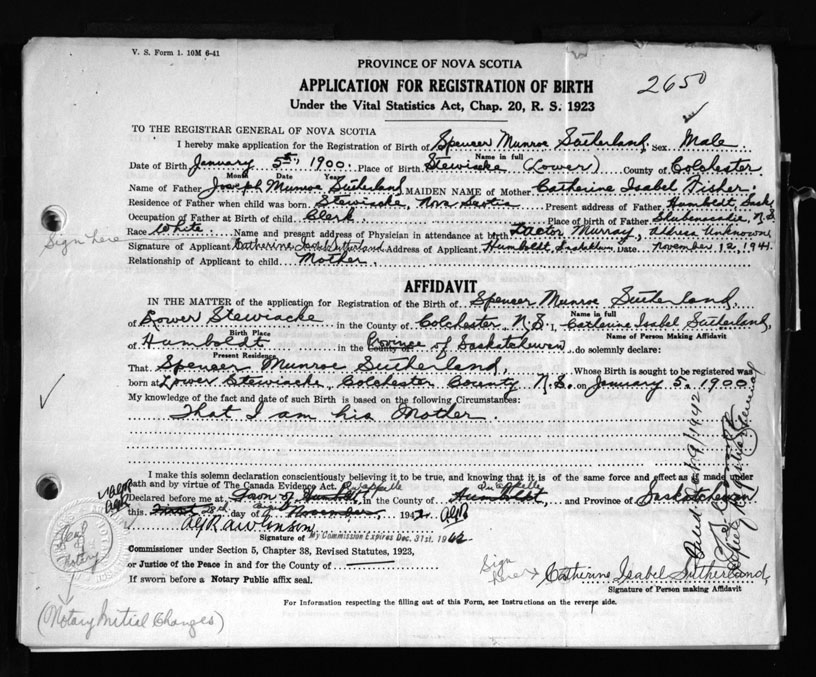 V. S. Form 1. 10M 6-41
PROVINCE OF NOVA SCOTIA
APPLICATION FOR REGISTRATION OF BIRTH
2650
Under the Vital Statistics Act, Chap. 20, R. S. 1923
TO THE REGISTRAR GENERAL OF NOVA SCOTIA
I hereby make application for the Registration of Birth of Spencer Munroe Sutherland. Sex Male
Name in full
Date of Birth January 5th, 1900. Place of Birth Stewiacke (Lower) County of Colchester.
Month Date Year
Name of Father Joseph Munroe Sutherland MAIDEN NAME of Mother Catherine Isabel Fisher.
Residence of Father when child was born Stewiacke, Nova Scotia Present address of Father Humboldt, Sask.
Occupation of Father at Birth of child Clerk Place of birth of Father Shubenacadie, N.S.
Race White Name and present address of Physician in attendance at birth Doctor Murray, Address Unknown
Sign here
Signature of Applicant Catherine Isabel Sutherland Address of Applicant Humboldt, Date November 12, 1941.
Relationship of Applicant to child Mother.
AFFIDAVIT
IN THE MATTER of the application for Registration of the Birth of Spencer Munroe Sutherland.
Name in full
of Lower Stewiacke in the County of Colchester N.S. I, Catherine Isabel Sutherland,
Birth Place
Name of Person Making Affidavit
of Humboldt in the County of Province of Saskatchewan do solemnly declare:
Present Residence
That Spencer Munroe Sutherland, Whose Birth is sought to be registered was
born at Lower Stewiacke, Colchester County N.S. on January 5, 1900
My knowledge of the fact and date of such Birth is based on the following Circumstances:
That I am his Mother.
I make this solemn declaration conscientiously believing it to be true, and knowing that it is of the same force and effect as if made under
oath and by virtue of The Canada Evidence Act.
Declared before me at Town of in the County of Humboldt, and Province of Saskatchewan
this day of November, 194
Signature of My Commission Expires Dec. 31st. 1942
Commissioner under Section 5, Chapter 38, Revised Statutes, 1923,
or Justice of the Peace in and for the County of
If sworn before a Notary Public affix seal.
Seal of Notary
(Notary Initial Changes)
Sign here
Catherine Isabel Sutherland,
Signature of Person making Affidavit
For Information respecting the filling out of this Form, see Instructions on the reverse side.